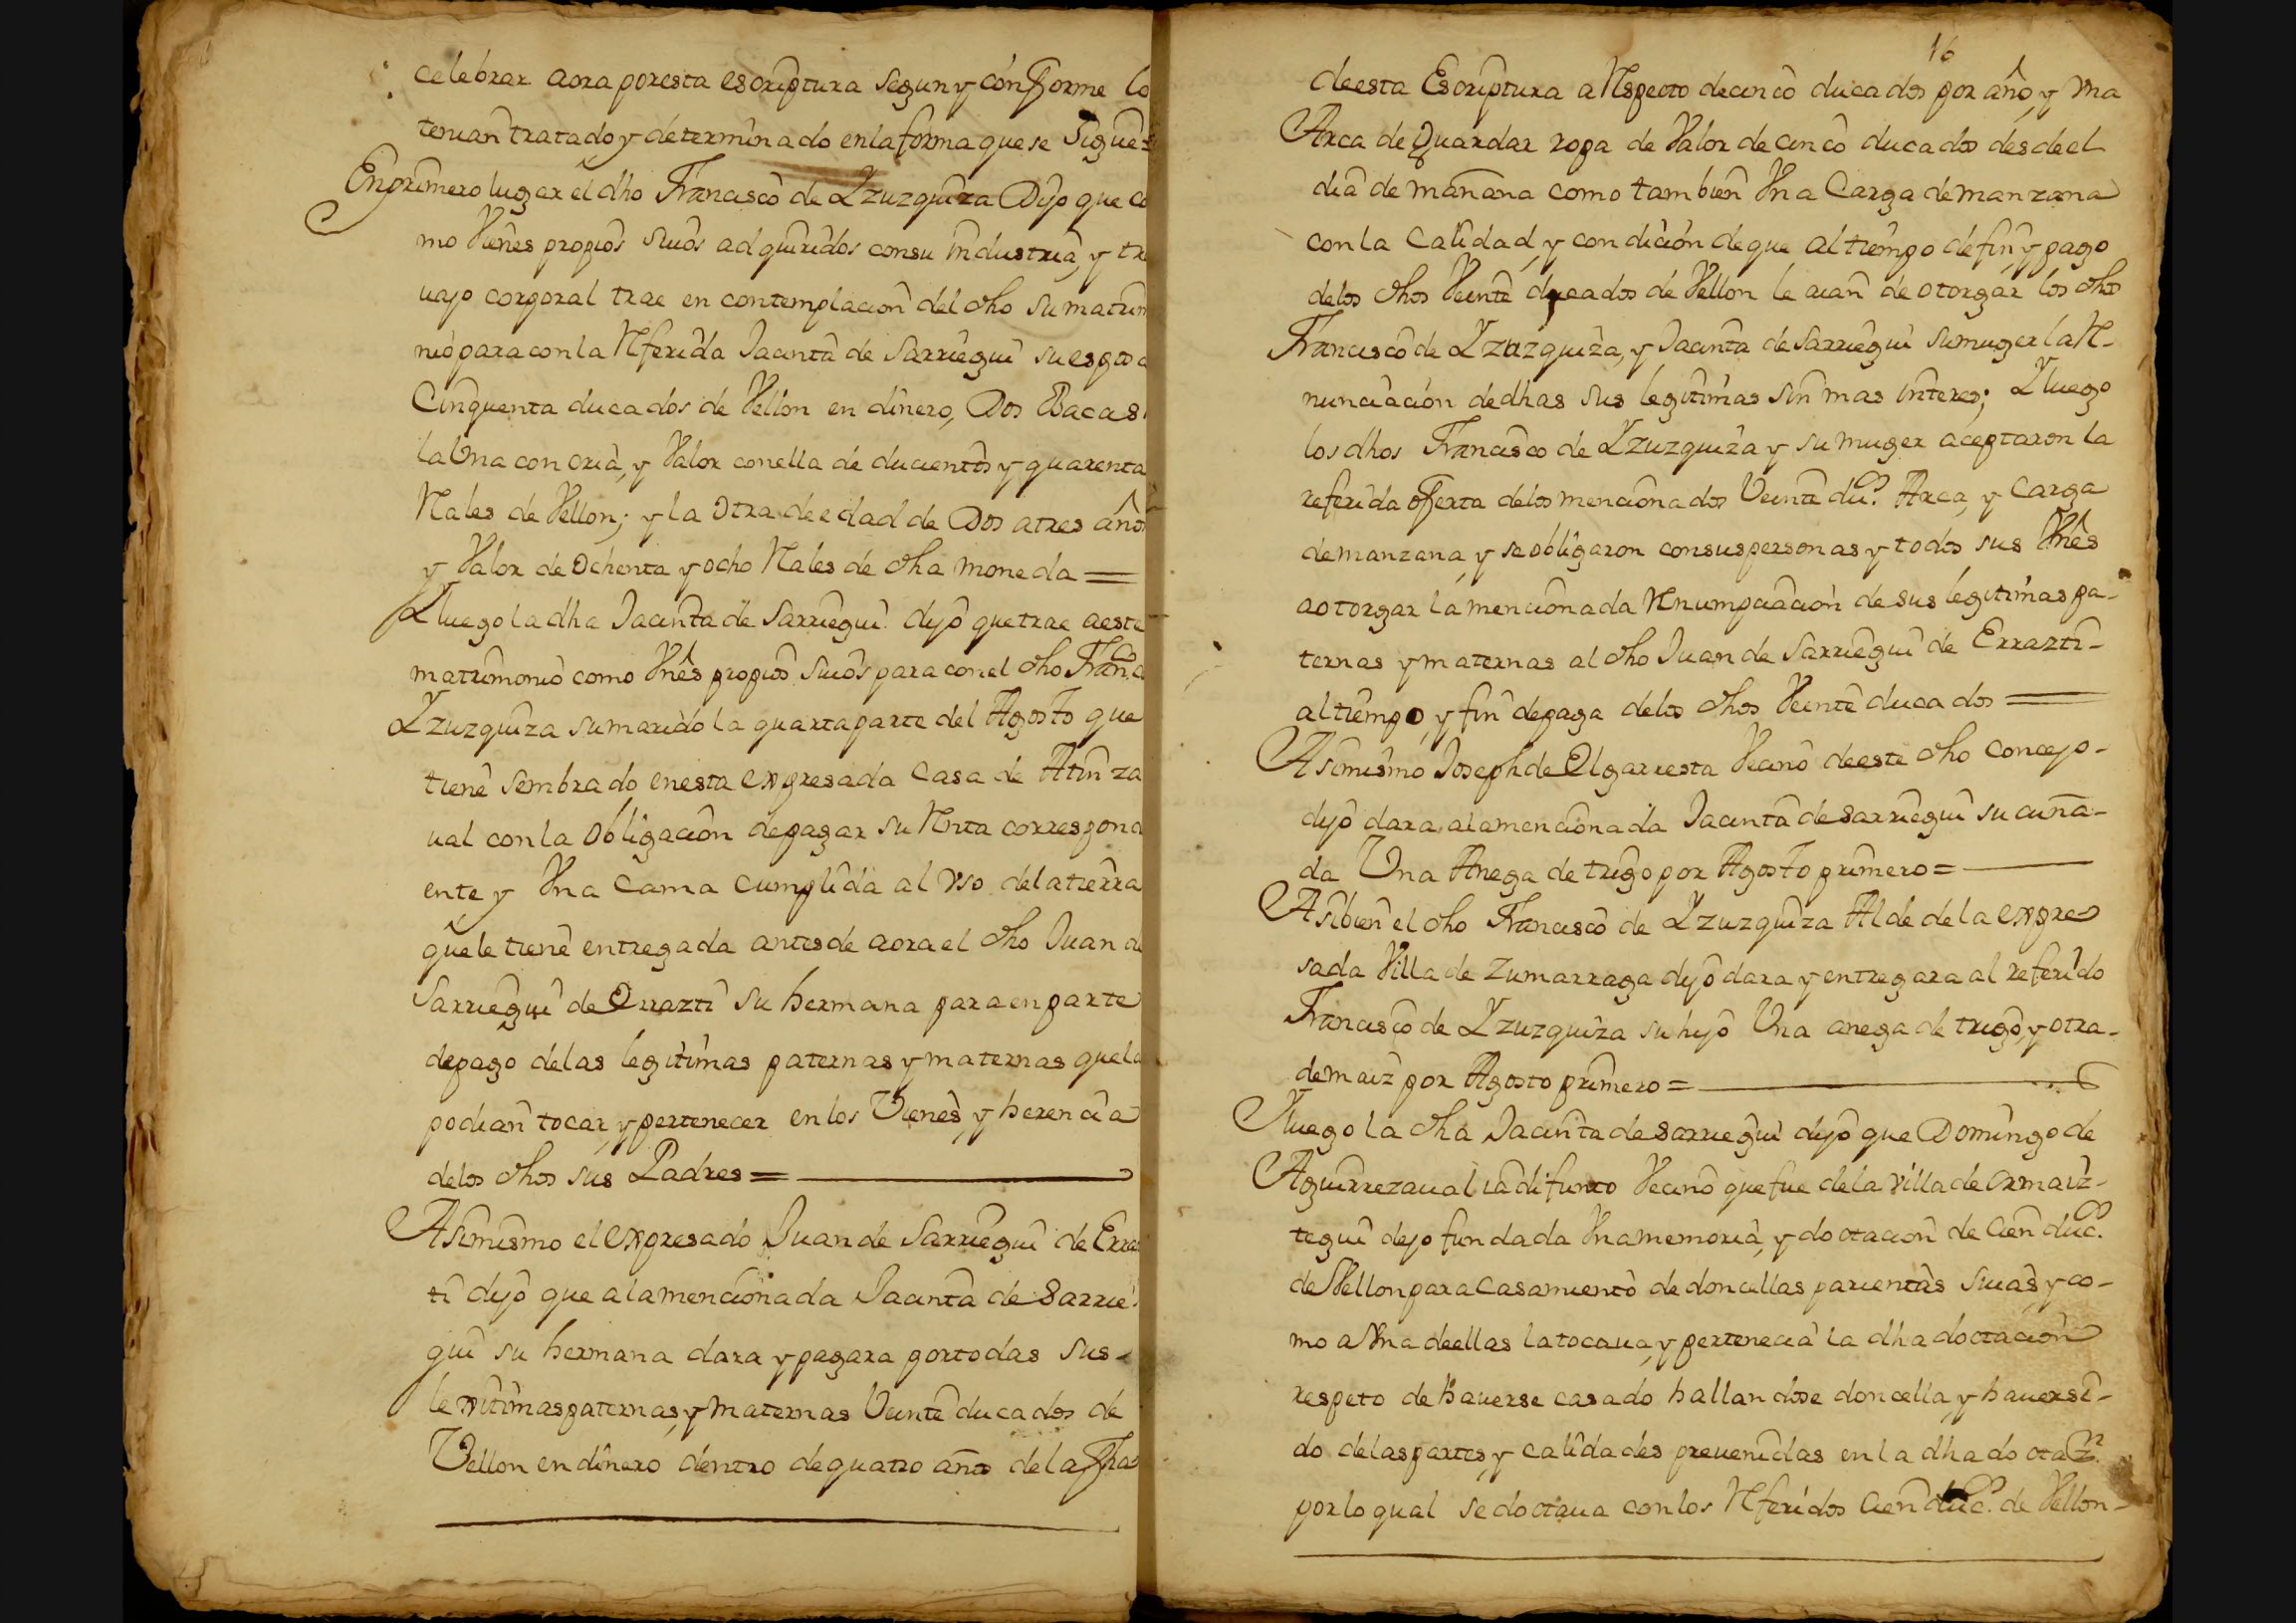 celebrar aora por esta escriptura segun y conforme lo
tenian tratado y determinado en la forma que se sigue=
En primero lugar el dho Francisco de Yzuzquiza Dijo que co
mo Vienes propios suios adquiridos con su industria, y tra
uajo corporal trae en contemplacion del dho su matrim
nio para con la Referida Jacinta de Sarriegui su esposa
Cinquenta ducados de Vellon en dinero, Dos Bacas
la Una con cria, y Valor con ella de ducientos y quarenta
Reales de Vellon; y la otra de edad de Dos a tres años
y Valor de ochenta y ocho Reales de dha moneda =
Y luego la dha Jacinta de Sarriegui dijo que trae a este
matrimonio como Vnes propios suios para con el dho Franco
Yzuzquiza su marido la quarta parte del Agosto que
tiene sembrado en esta expresada Casa de Atinza
ual con la obligacion de pagar su Renta correspond
ente y Vna Cama cumplida al Vso de la tierra
que le tiene entregada antes de aora el dho Juan de
Sarriegui de Errazti su hermana para en parte
de pago de las legitimas paternas y maternas que la
podian tocar, y pertenecer en los Vienes, y herencia
de los dhos sus Padres =
Asimismo el expresado Juan de Sarriegui de Erraz
ti dijo que a la mencionada Jacinta de Sarrie
gui su hermana dara y pagara por todas sus
lexitimas paternas, y maternas Veinte ducados de
Vellon en dinero dentro de quatro años de la fha
16
de esta Escriptura a Respecto de cinco ducados por año, y Vna
Arca de Guardar ropa de Valor de cinco ducados desde el
dia de mañana como tambien Vna Carga de manzana
con la Calidad, y condicion de que al tiempo de fin, y pago
de los dhos Veinte ducados de Vellon le aian de otorgar los dhos
Francisco de Yzuzquiza, y Jacinta de Sarriegui su muger la Re-
nunciacion de dhas sus legitimas sin mas interes; Y luego
los dhos Francisco de Yzuzquiza y su muger aceptaron la
referida oferta de los mencionados Veinte dus. Arca, y Carga
de manzana, y se obligaron con sus personas y todos sus Vnes
a otorgar la mencionada Renumpciacion de sus legitimas pa-
ternas y maternas al dho Juan de Sarriegui de Errazti-
al tiempo, y fin de paga de los dhos Veinte ducados =
Asimismo Joseph de Elgarresta Vecino de este dho Concejo-
dijo dara, a la mencionada Jacinta de Sarriegui su cuña-
da Una Anega de trigo por Agosto primero =
Asibien el dho Francisco de Yzuzquiza Alde de la expre
sada Villa de Zumarraga dijo dara y entregara al referido
Francisco de Yzuzquiza su hijo Una anega de trigo, y otra-
de maiz por Agosto primero =
Y luego la dha Jacinta de Sarriegui dijo que Domingo de
Aguirrezaual ia difunto Vecino que fue de la villa de Ormaiz-
tegui dejo fundada Vna memoria, y doctacion de Cien duc.os
de Vellon para Casamiento de doncellas parientas suias, y co-
mo a Vna de ellas la tocaua, y pertenecia la dha doctacion
respeto de hauerse casado hallandose doncella, y hauer si-
do de las partes, y calidades preuenidas en la dha doctazn
por lo qual se doctaua con los Referidos Cien duc.os de Vellon-